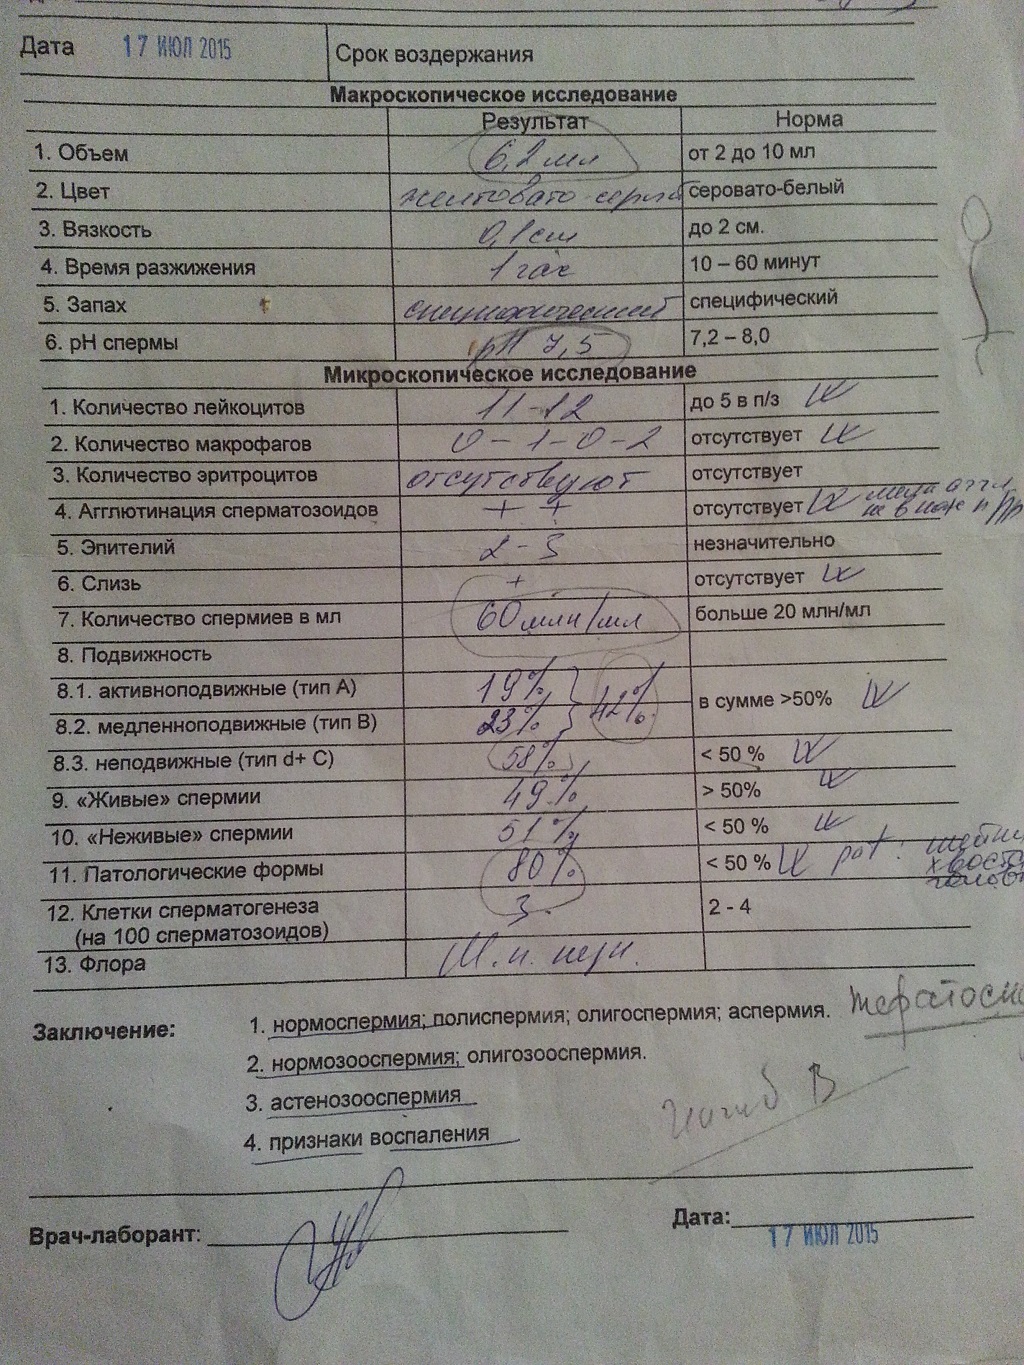 Дата 17 ИЮЛ 2015 Срок воздержания
Макроскопическое исследование
Результат Норма
1. Объем 6,2 мл от 2 до 10 мл
2. Цвет желтовато-серый серовато-белый
3. Вязкость 0,1 см до 2 см.
4. Время разжижения 1 час 10 – 60 минут
5. Запах специфический специфический
6. pH спермы pH 7,5 7,2 – 8,0
Микроскопическое исследование
1. Количество лейкоцитов 11-12 до 5 в п/з
2. Количество макрофагов 0-1-0-2 отсутствует
3. Количество эритроцитов отсутствуют отсутствует
4. Агглютинация сперматозоидов + + отсутствует
5. Эпителий 2-3 незначительно
6. Слизь + отсутствует
7. Количество спермиев в мл 60 млн/мл больше 20 млн/мл
8. Подвижность
8.1. активноподвижные (тип А) 19%
8.2. медленноподвижные (тип В) 23% 42% в сумме >50%
8.3. неподвижные (тип d+ C) 58% < 50 %
9. «Живые» спермии 49% > 50%
10. «Неживые» спермии 51% < 50 %
11. Патологические формы 80% < 50 %
12. Клетки сперматогенеза 3. 2 - 4
(на 100 сперматозоидов)
13. Флора
Заключение: 1. нормоспермия; полиспермия; олигоспермия; аспермия.
2. нормозооспермия; олигозооспермия.
3. астенозооспермия
4. признаки воспаления
Врач-лаборант: Дата:
17 ИЮЛ 2015